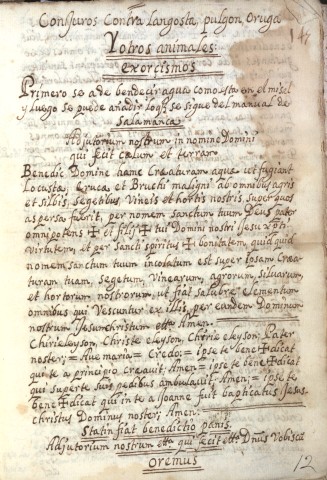 Conjuros Contra langosta, pulgon Oruga
Y otros animales:
exorcismos
Primero se ade bendecir agua como esta en el misel
y luego se puede añadir lo q̃ se sigue del manual de
Salamanca
Adjutorium nostrum in nomine Domini
qui fecit cælum et terram
Benedic Domine hanc Creaturam aquæ ut fugiant
Locustæ, Erucæ et Bruchi maligni ab omnibus agris
et Silbis, Segetibus Vineis et hortis nostris super quos
aspersa fuerit, per nomem Sanctum tuum Deus pater
omnipotens ✠ et filij ✠ tui Domini nostri Jesu xp̃ti
virtutem, et per Sancti Spiritus ✠ bonitatem, quid quid
nomem Sanctum tuum inbocatum est super ipsam Crea-
turam tuam, Segetum, Vinearum, agrorum, Silvarum,
et hortorum nostrorum, ut fiat salubre elementum
omnibus qui Vescuntur ex illis, per eandem Dominum
nostrum Jesum christum ettª Amen.
Chirie leyson, Christe eleyson, Chirie eleyson: Pater
noster; = Ave maria = Credo: = ipse te bene ✠ dicat
qui te a principio creauit; Amen; = ipse te bene ✠ dicat
qui superte suis pedibus ambulauit. Amen; = ipse te
bene ✠ dicat qui in te a Joanne fuit baptiçatus Jesus
christus Dominus noster; Amen:
Statin fiat benedictio panis.
Adjutorium nostrum ettª qui fecit ettª Dñus Vobisca
Oremus
12